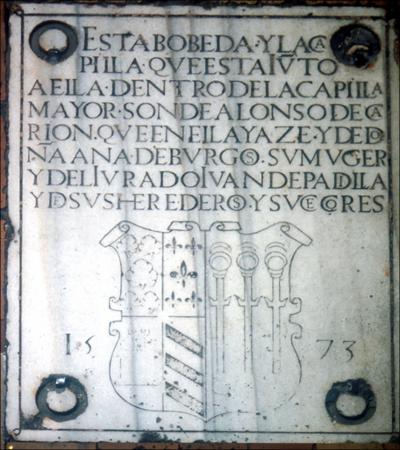 ESTA BOBEDA·Y LA CA
PILLA·QUE ESTA IVTO
A ELLA·DENTRO DE LA CAPILLA
MAYOR·SON DE ALONSO DE CA
RION·QUE EN ELLA YAZE·Y DE DO
ÑA ANA DE BURGOS·SU MUGER
Y DEL IVRADO IVAN DE PADILLA
Y D SUS HEREDEROS·Y SUCCESORES
15 73